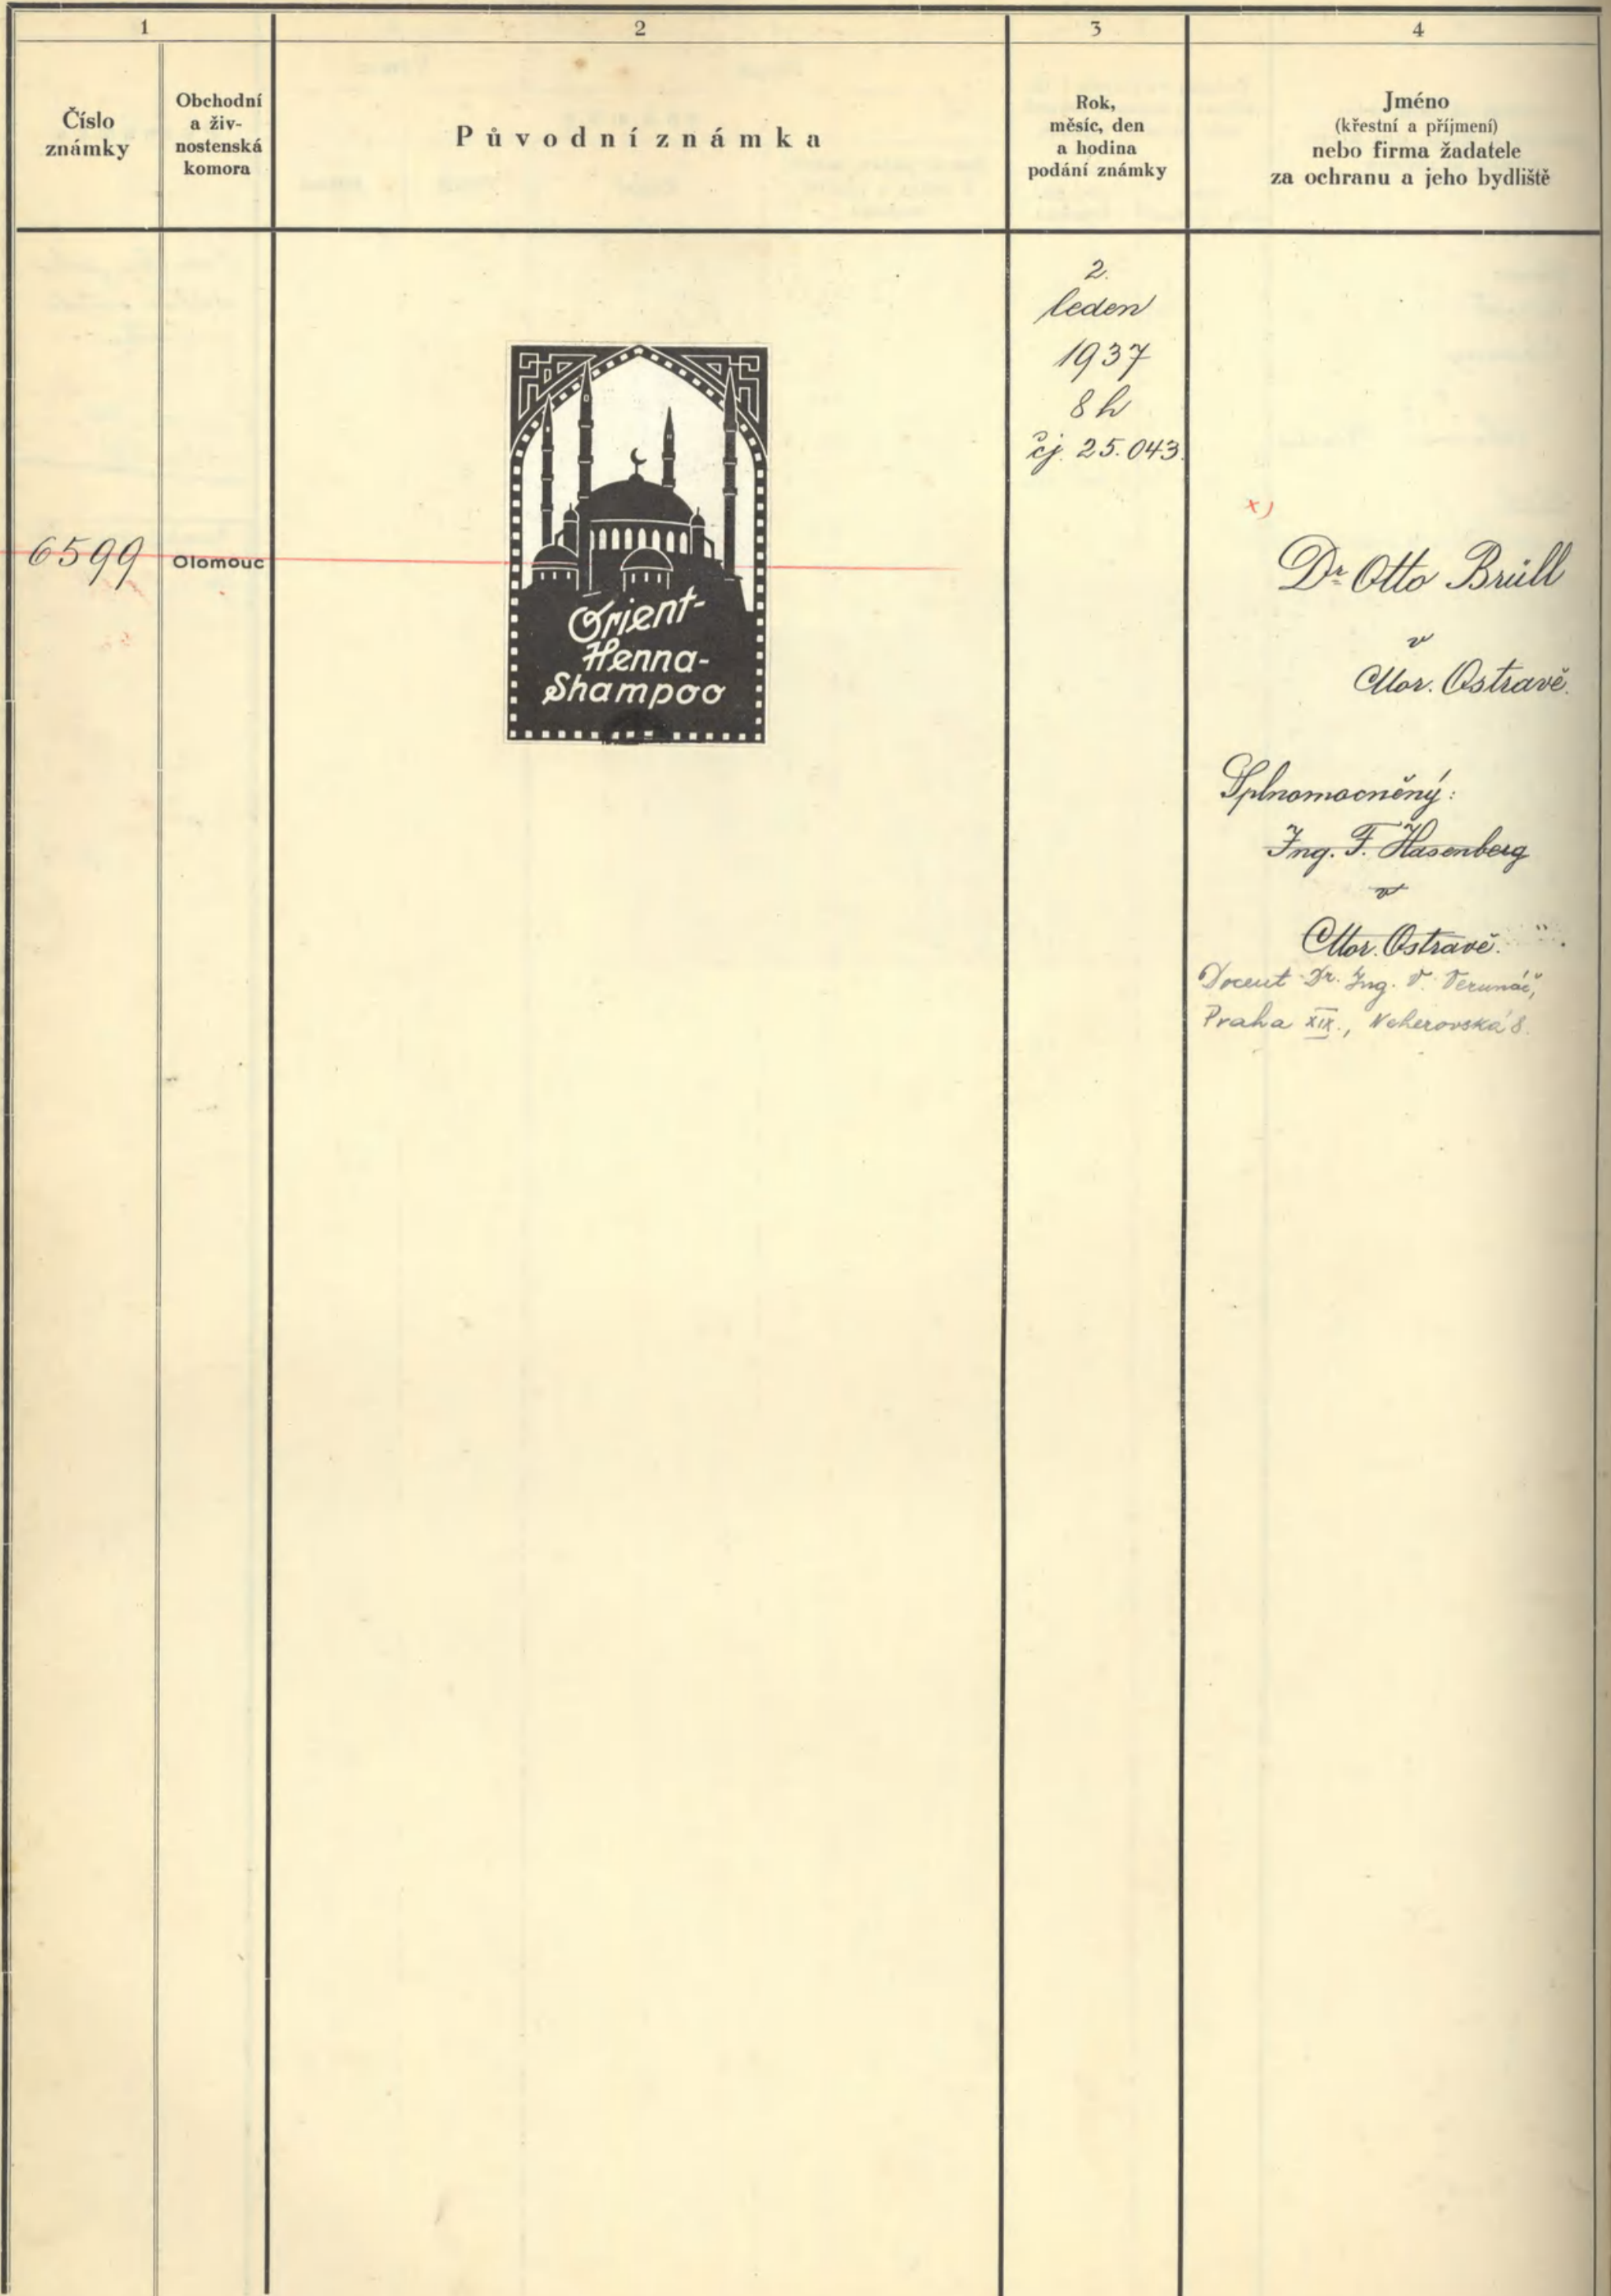 1
2
3
4
Číslo
známky
Obchodní
a živ-
nostenská
komora
Původní známka
Rok,
měsíc, den
a hodina
podání známky
Jméno
(křestní a příjmení)
nebo firma žadatele
za ochranu a jeho bydliště
6599
Olomouc
Orient-
Henna-
Shampoo
2.
leden
1937
8 h
čj. 25.043.
x)
Dr Otto Brüll
v
Mor. Ostravě.
Splnomocněný:
Ing. F. Hasenberg
v
Mor. Ostravě.
Docent Dr. Ing. V. Verunáč,
Praha XIX., 8.